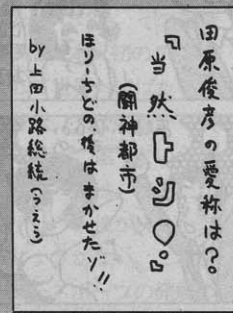 田原俊彦の愛称は？
『当然トシ○。』
(闘神都市)
ほりーちどの、後はまかせたゾ!!
by 上田小路総統(うえら)